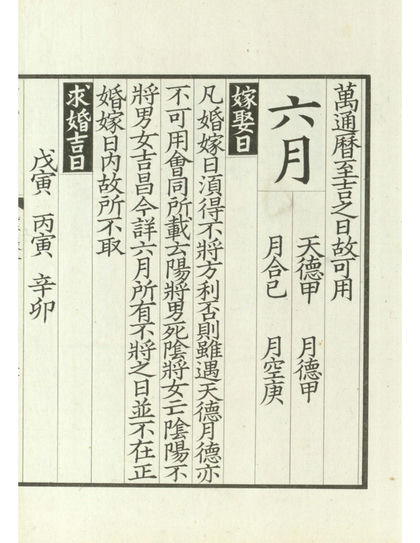 萬通曆至吉之日故可用
六月
天德甲 月德甲
月合已 月空庚
嫁娶日
凡婚嫁日湏得不將方利否則雖遇天德月德亦
不可用會同所載玄陽將男死陰將女亡陰陽不
將男女吉昌今詳六月所有不將之日並不在正
婚嫁日内故所不取
求婚吉日
戊寅 丙寅 辛卯